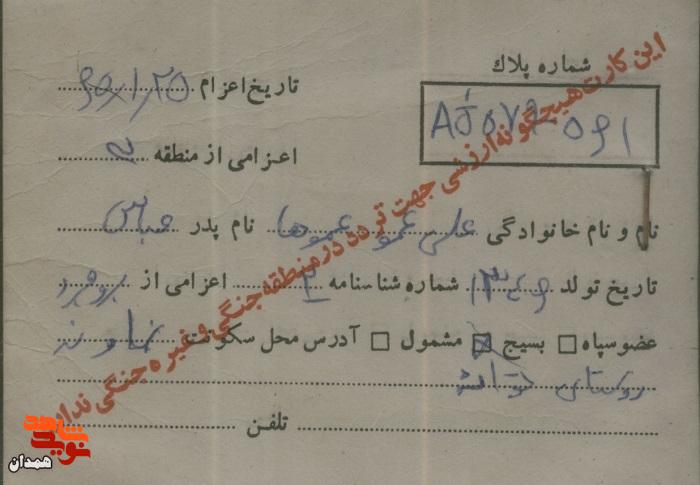 این کارت هیچگونه ارزشی جهت تردد در منطقه جنگی و غیره جنگی ندارد
شماره پلاک
تاریخ اعزام ۶۵/۱/۲۵
AJ ۵۷۲ ۵۶۱
اعزامی از منطقه
نام و نام خانوادگی علی عمو عموها نام پدر عباس
تاریخ تولد ۱۳۴۶ شماره شناسنامه ۲ اعزامی از بروجرد
عضو سپاه بسیج مشمول آدرس محل سکونت نهاوند
روستای
تلفن
نوید شاهد
همدان